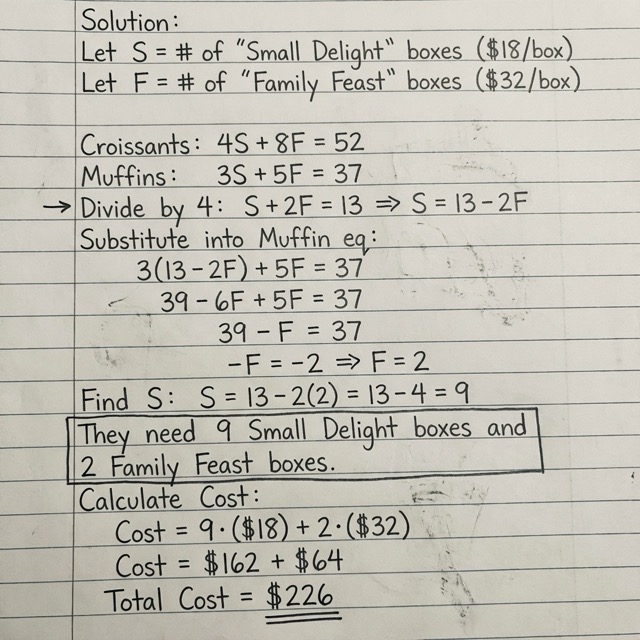 Solution:
Let S = # of "Small Delight" boxes ($18/box)
Let F = # of "Family Feast" boxes ($32/box)
Croissants: 4S + 8F = 52
Muffins: 3S + 5F = 37
→ Divide by 4: S + 2F = 13 ⇒ S = 13 - 2F
Substitute into Muffin eq:
3(13 - 2F) + 5F = 37
39 - 6F + 5F = 37
39 - F = 37
-F = -2 ⇒ F = 2
Find S: S = 13 - 2(2) = 13 - 4 = 9
They need 9 Small Delight boxes and
2 Family Feast boxes.
Calculate Cost:
Cost = 9·($18) + 2·($32)
Cost = $162 + $64
Total Cost = $226